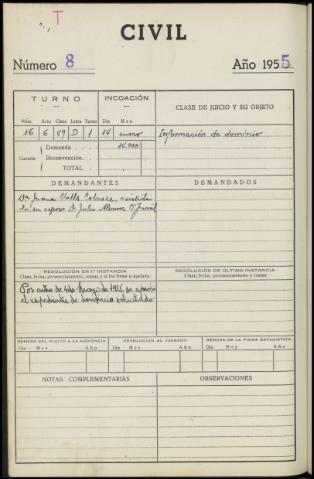 T
CIVIL
Número 8
Año 1955
TURNO
INCOACIÓN
CLASE DE JUICIO Y SU OBJETO
Núm. Acta Clase Letra Turno Día Mes
16 6 49 D 1 14 enero
Información de dominio
Cuantía
Demanda 14.000
Reconvención
TOTAL
DEMANDANTES
DEMANDADOS
Dª Juana Valls asistida
de su esposo D. Julio Álvarez
RESOLUCIÓN EN 1.ª INSTANCIA
Clase, fecha, pronunciamiento, costas y si fué firme o apelada.
RESOLUCIÓN DE ÚLTIMA INSTANCIA
Clase, fecha, pronunciamiento y costas
Por auto de 6 de Mayo de se aprueba
el expediente de dominio solicitado
REMESA DEL PLEITO A LA AUDIENCIA
DEVOLUCIÓN AL JUZGADO
REMESA DE LA FICHA ESTADÍSTICA
Día Mes Año Día Mes Año Día Mes Año
NOTAS COMPLEMENTARIAS
OBSERVACIONES